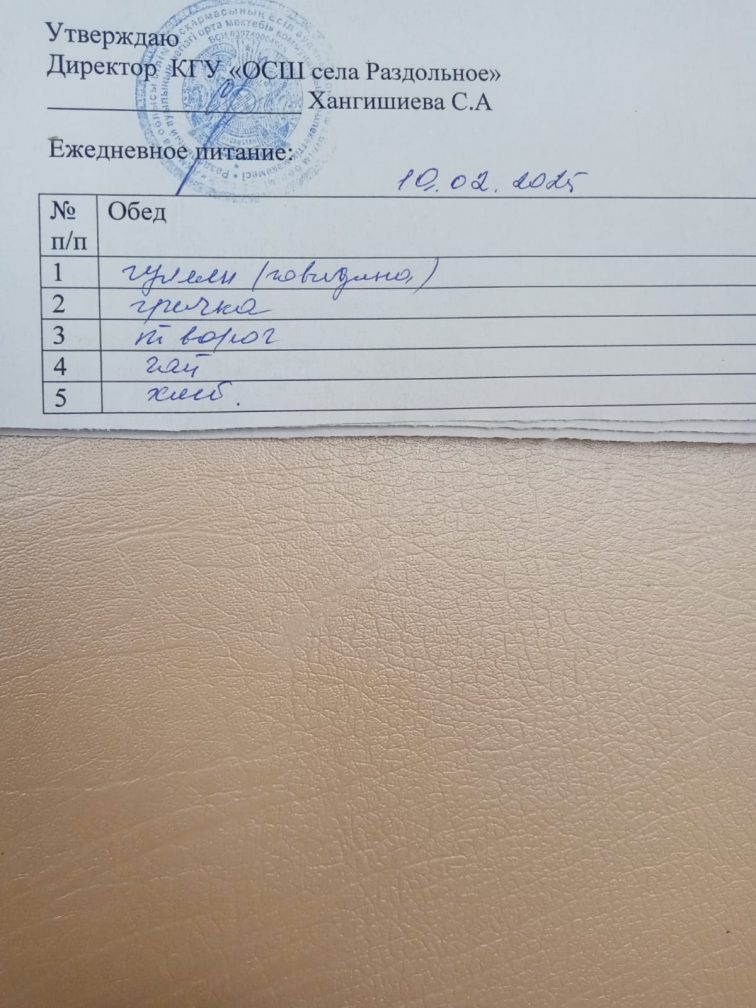 Утверждаю
Директор КГУ «ОСШ села Раздольное»
Хангишиева С.А
Ежедневное питание:
10.02.2025
№ п/п Обед
1 гуляш (говядина)
2 гречка
3 творог
4 чай
5 хлеб.